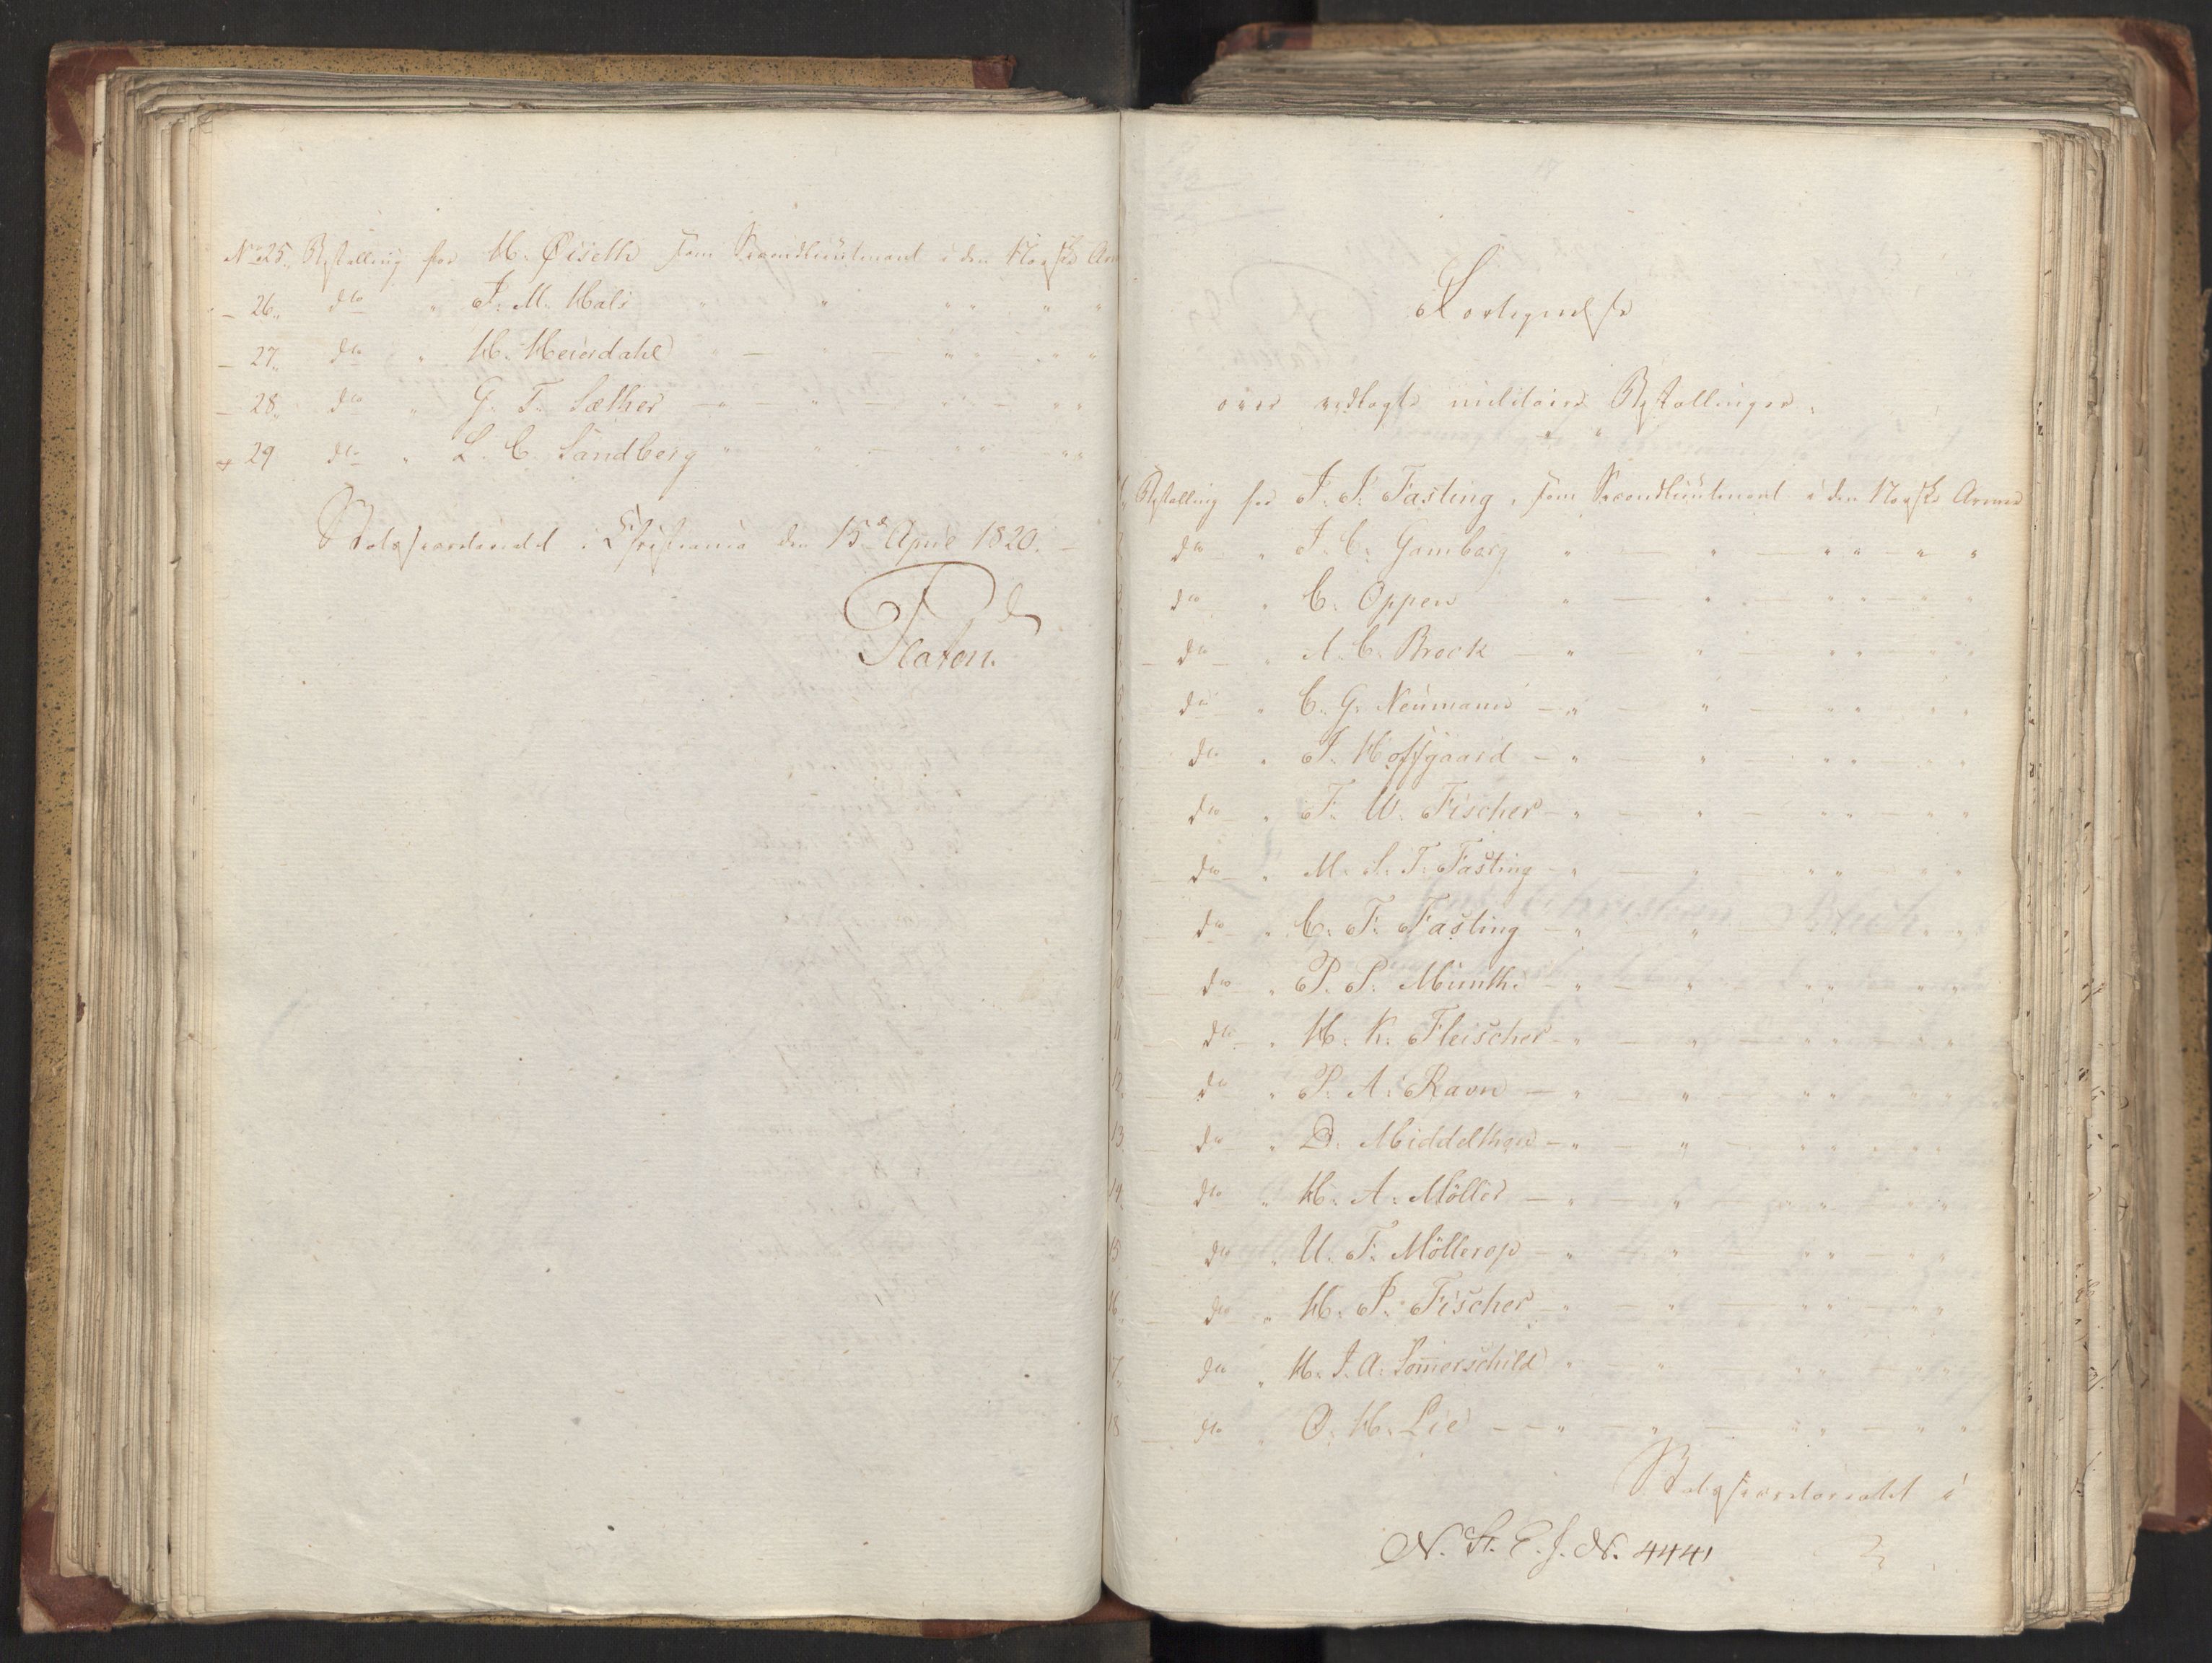 No 25. Bestalling for H. Øiseth som Secondlieutnant i den Norske Arm
– 26. do " J. M. Hals " " " " " "
– 27. do " H. Heierdahl " — " — " " " "
– 28. do " G. T. Sæther " — " — " " — " "
– 29 do " L. C. Sandberg " " — " " " "
Statssecretariatet i Christiania den 15de April 1820. –
Platen.
Fortegnelse
over vedlagte militaire Bestallinger.
Bestalling for J. S. Fasting, som Secondlieutnant i den Norske Armee
do " J. C. Gamborg " — " — " " " "
do " C. Oppen " — " — " " " "
do " A. C. Brock — " " — " " " "
do " C. G. Neumann — " — " — " " " "
do " J. Hoffgaard — " — " " " " "
do " F. W. Fischer — " — " — " " — " "
do " M. S. T. Fasting — " — " " " " "
9 do " C. F. Fasting — " " " " "
10 do " P. S. Munthe — " — " " " " "
11 do " H. K. Fleischer — " — " — " " " "
12. do " P. A. Ravn — " — " — " " " "
13 do " D. Middelthon — " — " — " " " "
14. do " H. A. Möller — " — " " " " "
15 do " U. F. Möllerop — " " " " " "
16. do " H. P. Fischer — " — " — " " " "
7. do " H. J. A. Somerschild " — " " " " "
18 do " O. H. Lie — – " — " — " " — " "
Statssecretariatet i
N. St. E. J. N. 4441